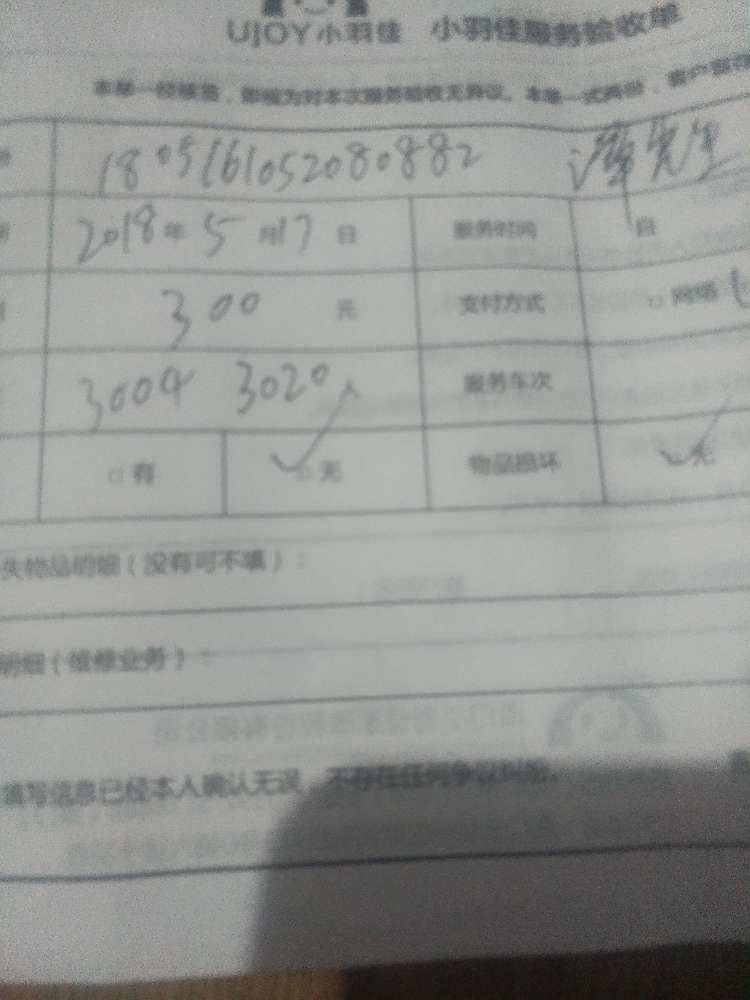 UJOY小羽佳 小羽佳服务验收单
本单一经核签,即视为对本次服务验收无异议。本单一式两份,客户留存
1805161052080882 谭先生
2018年5月17日 服务时间 自
300 元 支付方式 □ 网络
3004 3020 人 服务车次
□ 有 □ 无 物品损坏 无
失物品明细(没有可不填):
明细(维修业务):
填写信息已经本人确认无误,不存在任何争议纠纷。